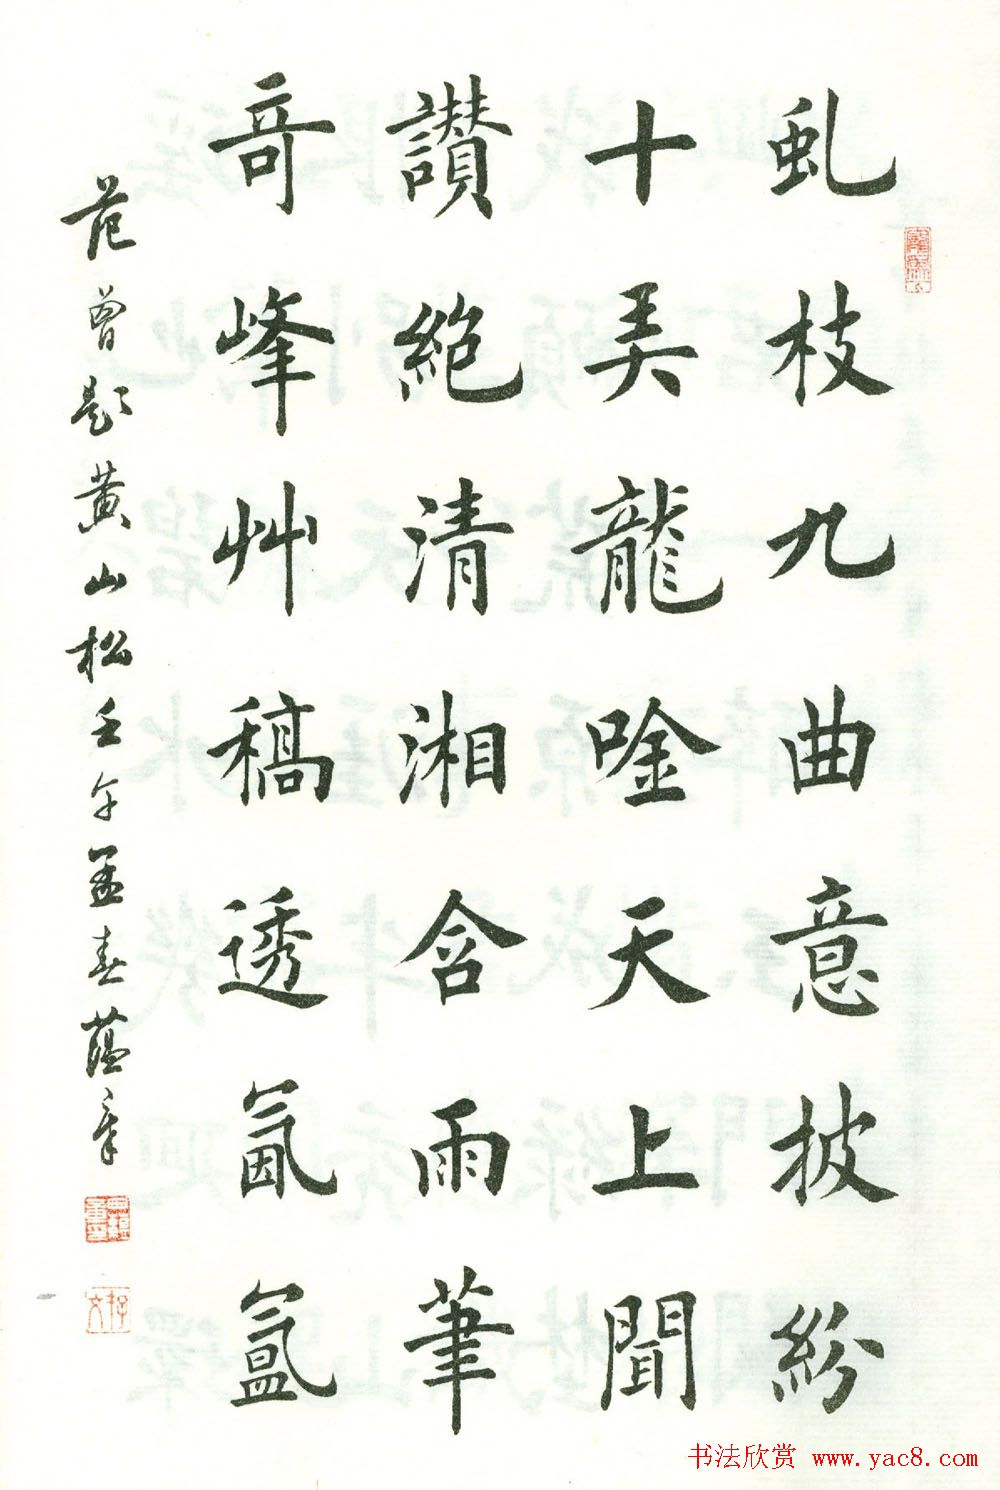 虬枝九曲意披紛
十美龍唫天上聞
讚絕清湘含雨筆
奇峰艸稿透氤氳
范曾題黃山松壬午孟春蘊章
书法欣赏 www.yac8.com